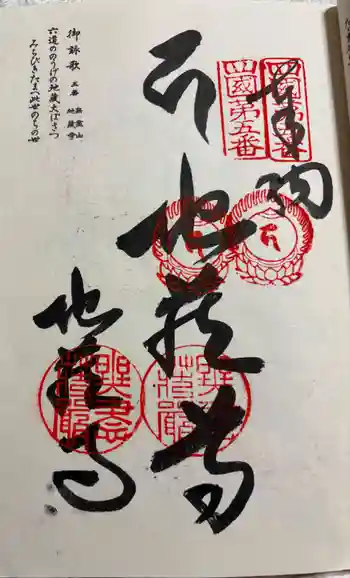 奉納
四國第五番
四國第五番
地蔵尊
地蔵寺
御詠歌 五番 無盡山 地蔵寺
六道ののうけの地蔵大ぼさつ
みちびきたまへ此世のちの世